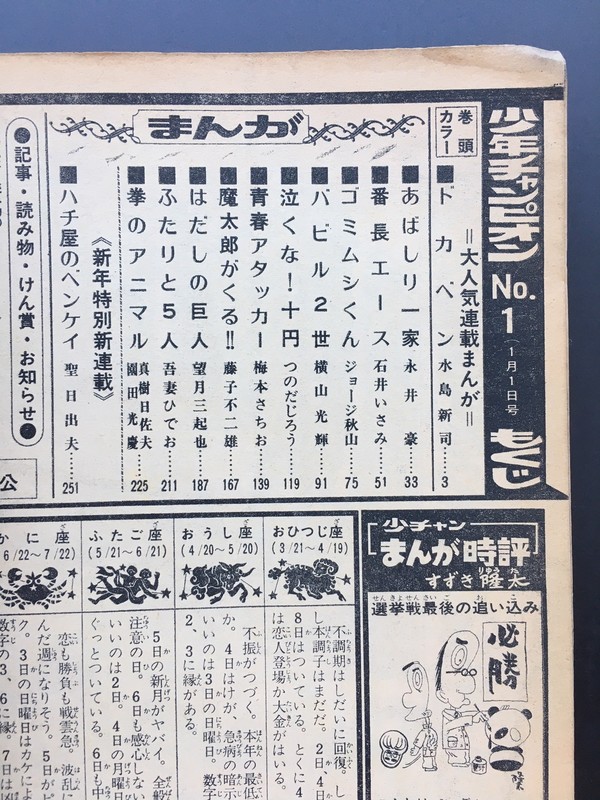 少年チャンピオン No.1 (1月1日号) もくじ
まんが
=大人気連載まんが=
巻頭カラー
■ドカベン 水島新司……3
■あばしり一家 永井豪……33
■番長エース 石井いさみ……51
■ゴミムシくん ジョージ秋山……75
■バビル2世 横山光輝……91
■泣くな!十円 つのだじろう……119
■青春アタッカー 梅本さちお……139
■魔太郎がくる!! 藤子不二雄……167
■はだしの巨人 望月三起也……187
■ふたりと5人 吾妻ひでお……211
■拳のアニマル 真樹日佐夫 園田光慶……225
《新年特別新連載》
■ハチ屋のベンケイ 聖日出夫……251
●記事・読み物・けん賞・お知らせ●
公
少チャン
まんが時評
すずき隆太
選挙戦最後の追い込み
必勝
おひつじ座
(3/21〜4/19)
不調期はしだいに回復。し
し本調子はまだだ。2日、4日
8日はついている。とくに4
は恋人登場か大金がはいる。
おうし座
(4/20〜5/20)
不振がつづく。本年の最低
か。4日はけが、急病の暗示
いいのは3日の日曜日。数字
2、3に縁がある。
ふたご座
(5/21〜6/21)
5日の新月がヤバイ。全般
注意の日。6日も感心しない
いいのは2日。4日の月曜日
ぐっとついている。6日も中
かに座
6/22〜7/22)
恋も勝負も戦雲急。波乱に
んだ週になりそう。5日がピ
ク、3日の日曜日はカケによ
数字の3、6に縁。7日は